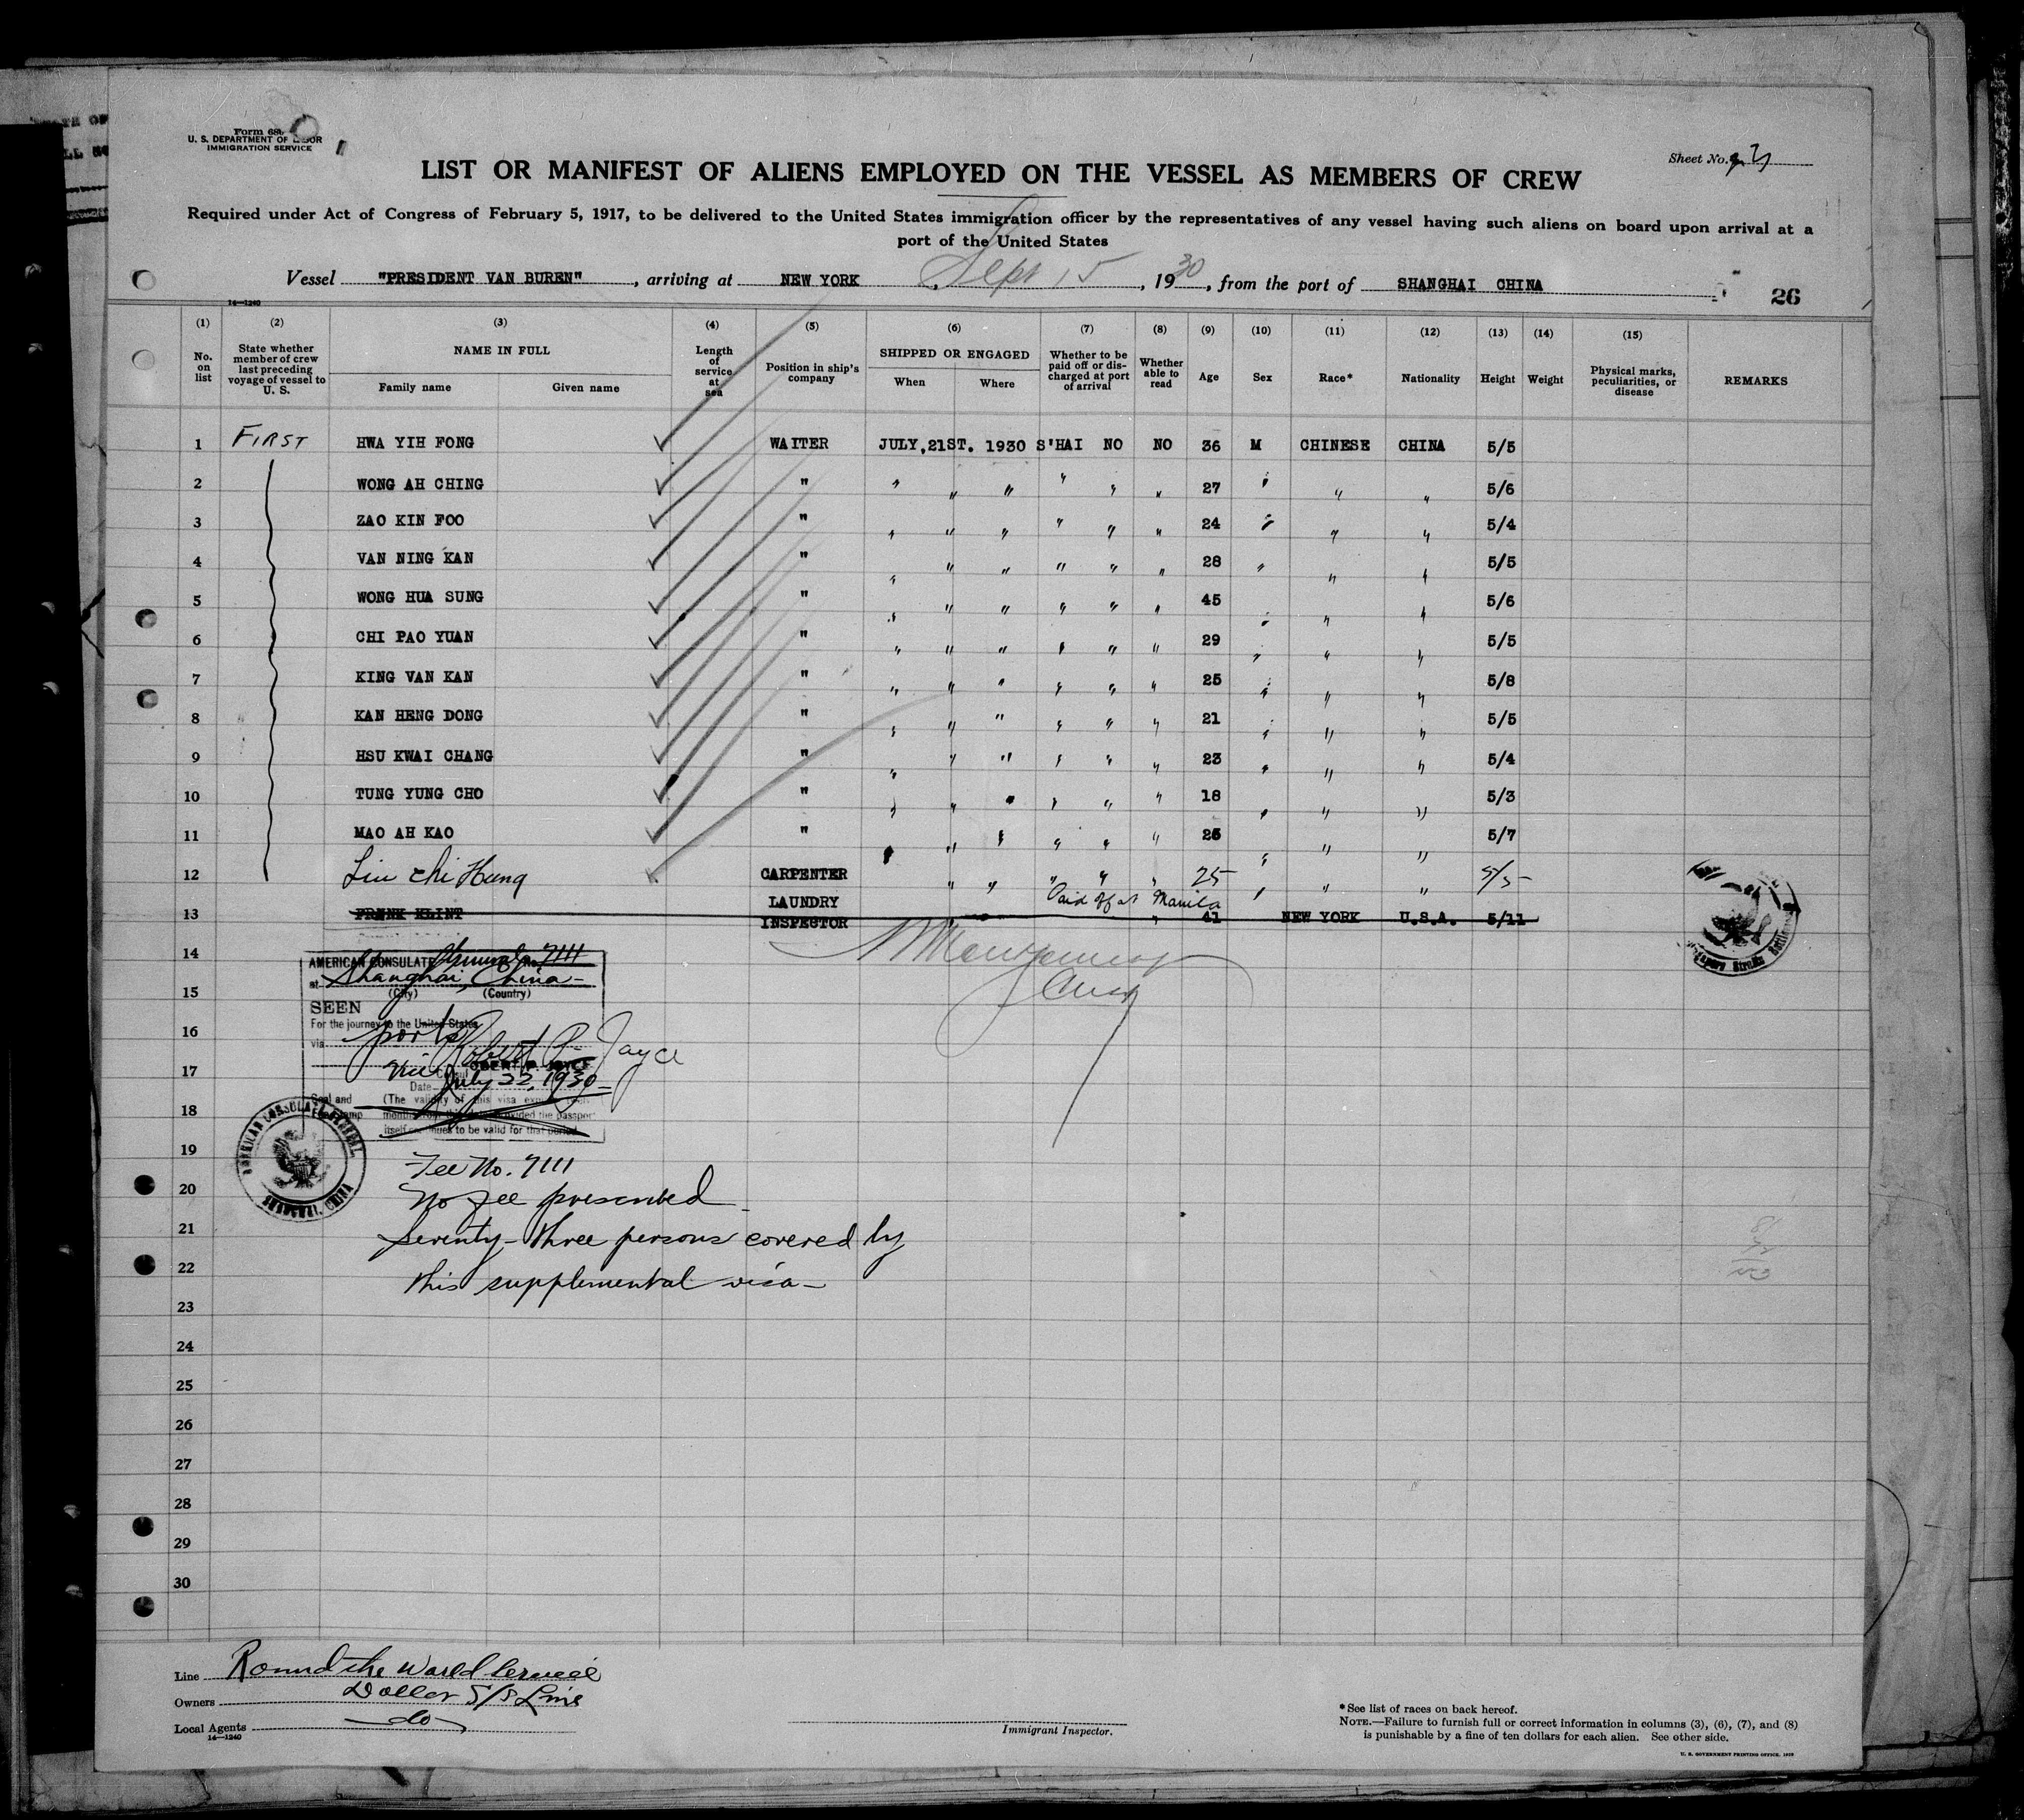 Form 680
U. S. DEPARTMENT OF LABOR
IMMIGRATION SERVICE
Sheet No.
LIST OR MANIFEST OF ALIENS EMPLOYED ON THE VESSEL AS MEMBERS OF CREW
Required under Act of Congress of February 5, 1917, to be delivered to the United States immigration officer by the representatives of any vessel having such aliens on board upon arrival at a
port of the United States
Vessel "PRESIDENT VAN BUREN", arriving at NEW YORK Sept 15, 1930, from the port of SHANGHAI CHINA
14—1240
26
(1) (2) (3) (4) (5) (6) (7) (8) (9) (10) (11) (12) (13) (14) (15)
No. on list
State whether member of crew last preceding voyage of vessel to U. S.
NAME IN FULL
Family name Given name
Length of service at sea
Position in ship's company
SHIPPED OR ENGAGED
When Where
Whether to be paid off or discharged at port of arrival
Whether able to read
Age Sex Race* Nationality Height Weight
Physical marks, peculiarities, or disease
REMARKS
1 FIRST HWA YIH FONG WAITER JULY,21ST. 1930 S'HAI NO NO 36 M CHINESE CHINA 5/5
2 WONG AH CHING " " " " " " " 27 " " " 5/6
3 ZAO KIN FOO " " " " " " " 24 " " " 5/4
4 VAN NING KAN " " " " " " " 28 " " " 5/5
5 WONG HUA SUNG " " " " " " " 45 " " " 5/6
6 CHI PAO YUAN " " " " " " " 29 " " " 5/5
7 KING VAN KAN " " " " " " " 25 " " " 5/8
8 KAN HENG DONG " " " " " " " 21 " " " 5/5
9 HSU KWAI CHANG " " " " " " " 23 " " " 5/4
10 TUNG YUNG CHO " " " " " " " 18 " " " 5/3
11 MAO AH KAO " " " " " " " " " " 5/7
12 Liu Chi Hung CARPENTER " " " " " 25 " " " 5/5
Paid off at Manila
13 FRANK KLINT LAUNDRY INSPECTOR " 41 NEW YORK U.S.A. 5/11
14
AMERICAN CONSULATE 7111
at Shanghai, China
(City) (Country)
15
SEEN
For the journey to the United States
16
via ports
Robert P. Joyce
17
Vice Consul
Date July 22, 1930
(The validity of this visa
18
Seal and
provided the passport
itself continues to be valid for that period
AMERICAN CONSULATE GENERAL
SHANGHAI, CHINA
19
Fee No. 7111
20
No fee prescribed
21
Seventy-three persons covered by
22
this supplemental visa
23
24
25
26
27
28
29
30
Line Round the World Service
Owners Dollar S/S Line
Local Agents do
14—1240
Immigrant Inspector.
*See list of races on back hereof.
NOTE.—Failure to furnish full or correct information in columns (3), (6), (7), and (8)
is punishable by a fine of ten dollars for each alien. See other side.
U. S. GOVERNMENT PRINTING OFFICE